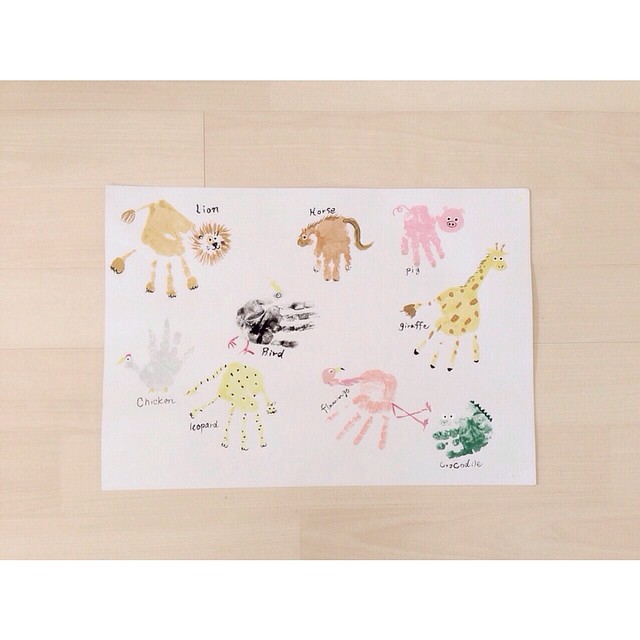 Lion
Horse
pig
giraffe
Bird
Chicken
leopard
flamingo
Crocodile